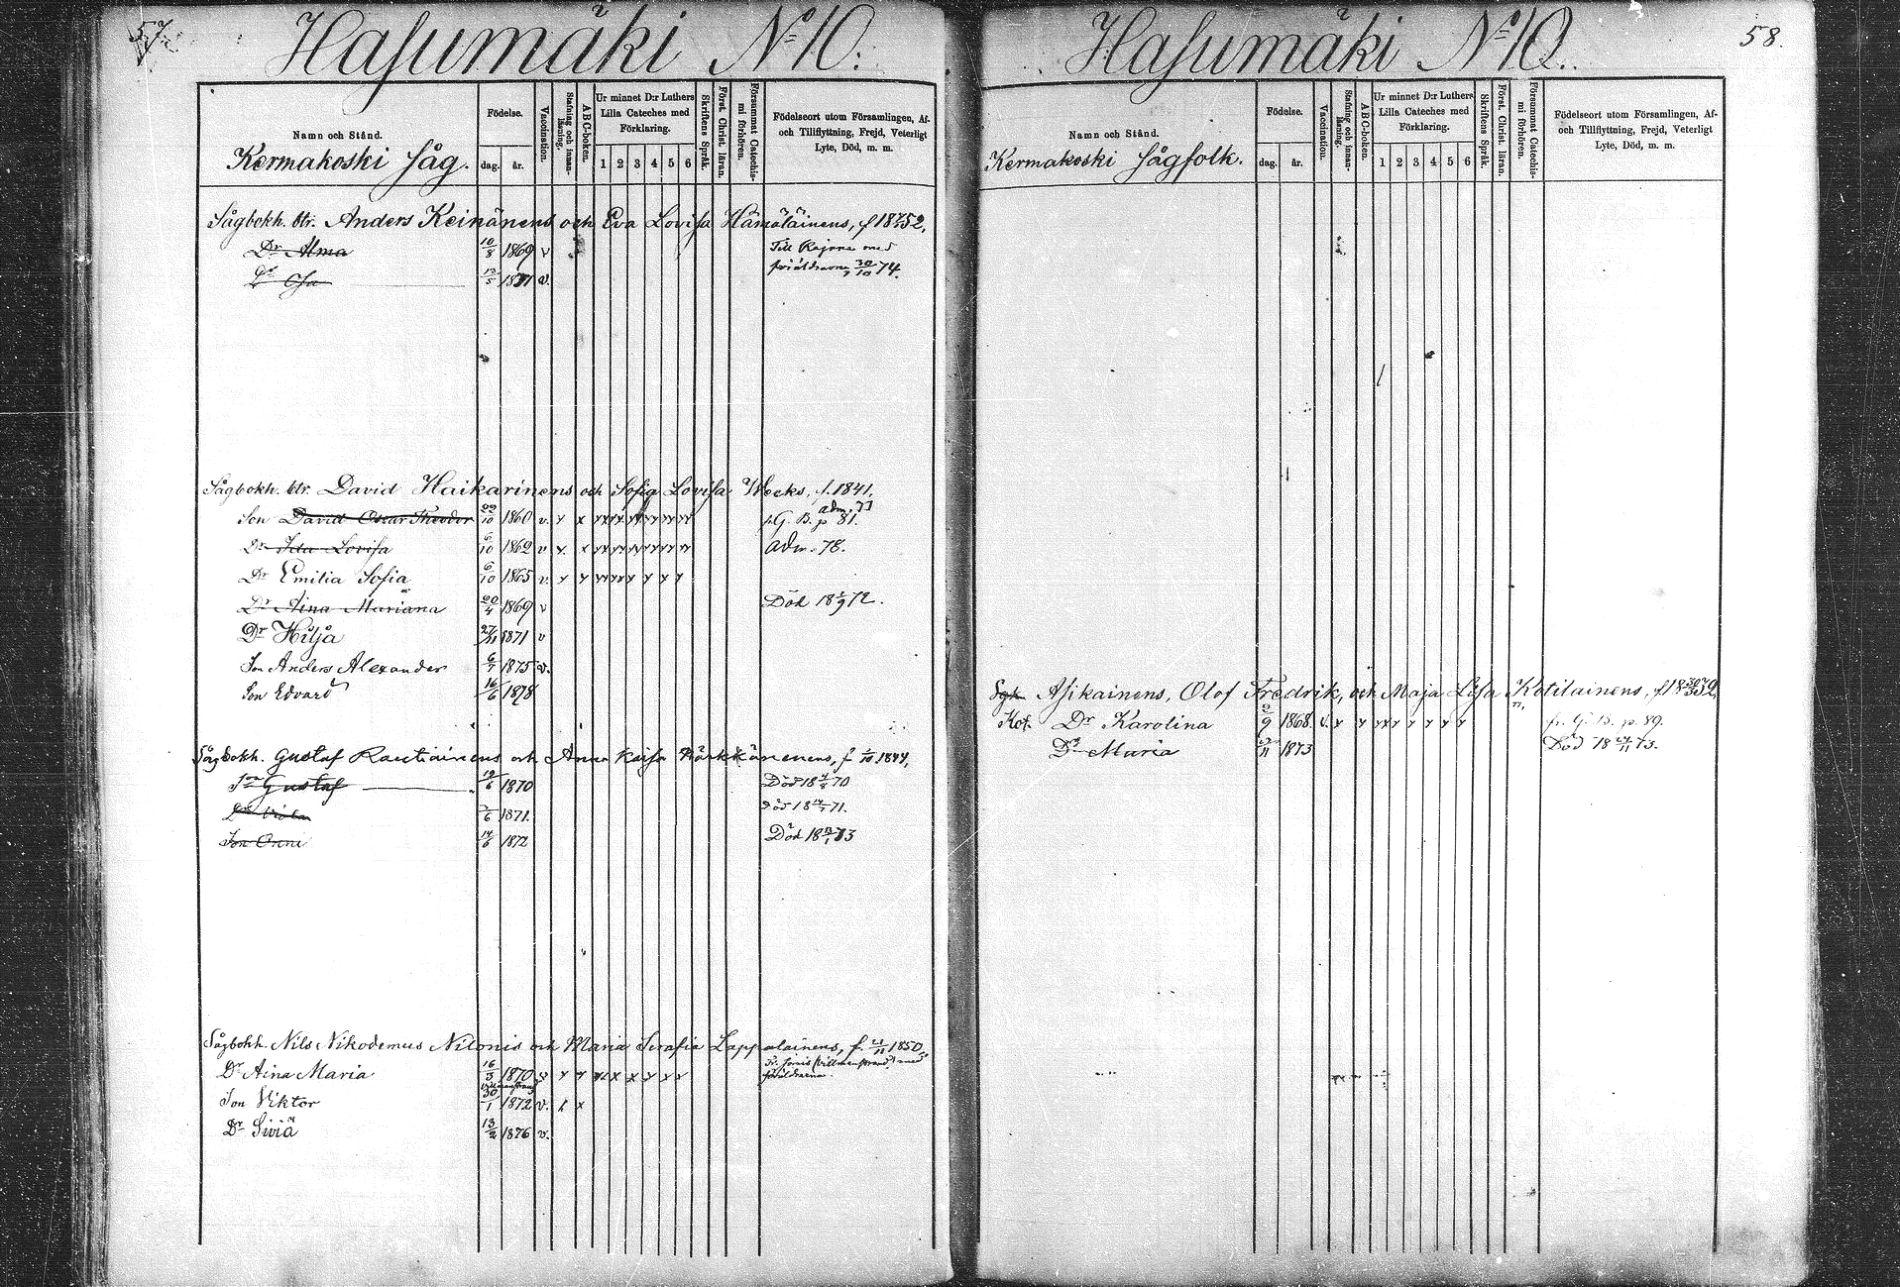 57.
Hasumäki Nº 10.
Namn och Stånd.
Kermakoski Såg.
Födelse.
dag. år.
Vaccination.
Stafning och innan-läsning.
ABC-boken.
Ur minnet D:r Luthers Lilla Cateches med Förklaring.
1 2 3 4 5 6
Skriftens Språk.
Först. Christ. läran.
Försummat Catechis-mi förhören.
Födelseort utom Församlingen, Af-
och Tillflyttning, Frejd, Veterligt
Lyte, Död, m. m.
Sågbokh. btr. Anders Keinänens och Eva Lovisa Hämäläinens, f 1852,
Dr Alma 10/8 1869 v Till Rajana med
Dr 1871 v. föräldrarna 30/10 74.
Sågbokh. btr. David Haikarinens och Sofia Lovisa f. 1841.
Son David Oscar Theodor 10 1860 v. f.G.B. p 81. adm. 77
Dr Ida Lovisa 6/10 1862 v adm. 78.
Dr Emilia Sofia 6/10 1865 v.
Dr Aina Mariana 20/4 1869 v Död 72.
Dr Hilja 27/11 1871 v
Son Anders Alexander 6/7 1875 v.
Son Edvard 16/6 1878
Sågbokh. Gustaf Rautiainens och Anna Kaisa Kärkkäinens, f 10 1844,
Son Gustaf 6 1870 Död 18 70
Dr 6 1871. Död 18 71.
Son Onni 14/6 1872 Död 18 73
Sågbokh. Nils Nikodemus Nilonis och Maria Serafia Lappalainens, f. 11 1850
Dr Aina Maria 16/3 1870 v föräldrarna
Son Viktor 30/1 1872 v. x
Dr Siviä 13/2 1876 v.
58.
Hasumäki Nº 10.
Namn och Stånd.
Kermakoski Sågfolk.
Födelse.
dag. år.
Vaccination.
Stafning och innan-läsning.
ABC-boken.
Ur minnet D:r Luthers Lilla Cateches med Förklaring.
1 2 3 4 5 6
Skriftens Språk.
Först. Christ. läran.
Försummat Catechis-mi förhören.
Födelseort utom Församlingen, Af-
och Tillflyttning, Frejd, Veterligt
Lyte, Död, m. m.
Asikainens, Olof Fredrik, och Maja Lisa Kotilainens,
Dr Karolina 2/9 1868 v. fr. G. B. p. 89.
Dr Maria 11 1873 Död 18 11 73.